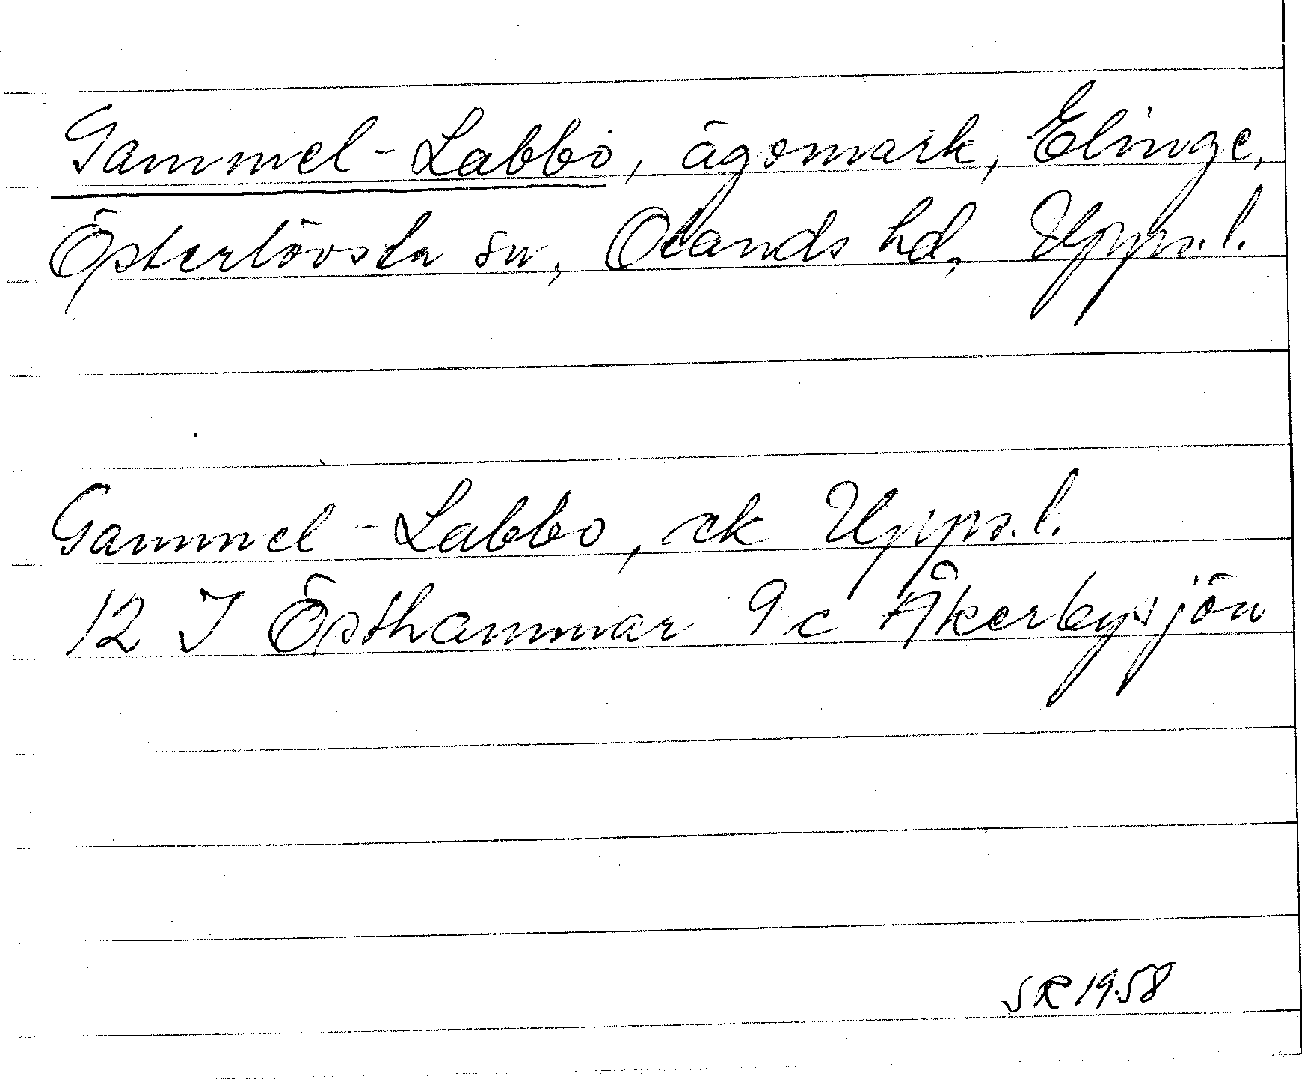 Gammel-Labbo, ägomark, Elinge,
Österlövsta sn, Olands hd, Upps.l.
Gammel-Labbo, ek Upps.l.
12 I Östhammar 9 c Åkerbysjön
SR 1958